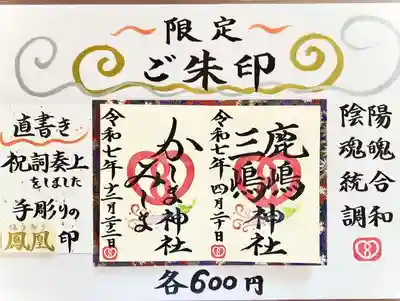 限定
ご朱印
陽魄合和
陰魂統調
鹿嶋
三嶋
神社
令和七年 四月
かしま
みしま
神社
令和七年
直書き
祝詞奏上
をしました
手彫りの
ほうおう
鳳凰印
各600円